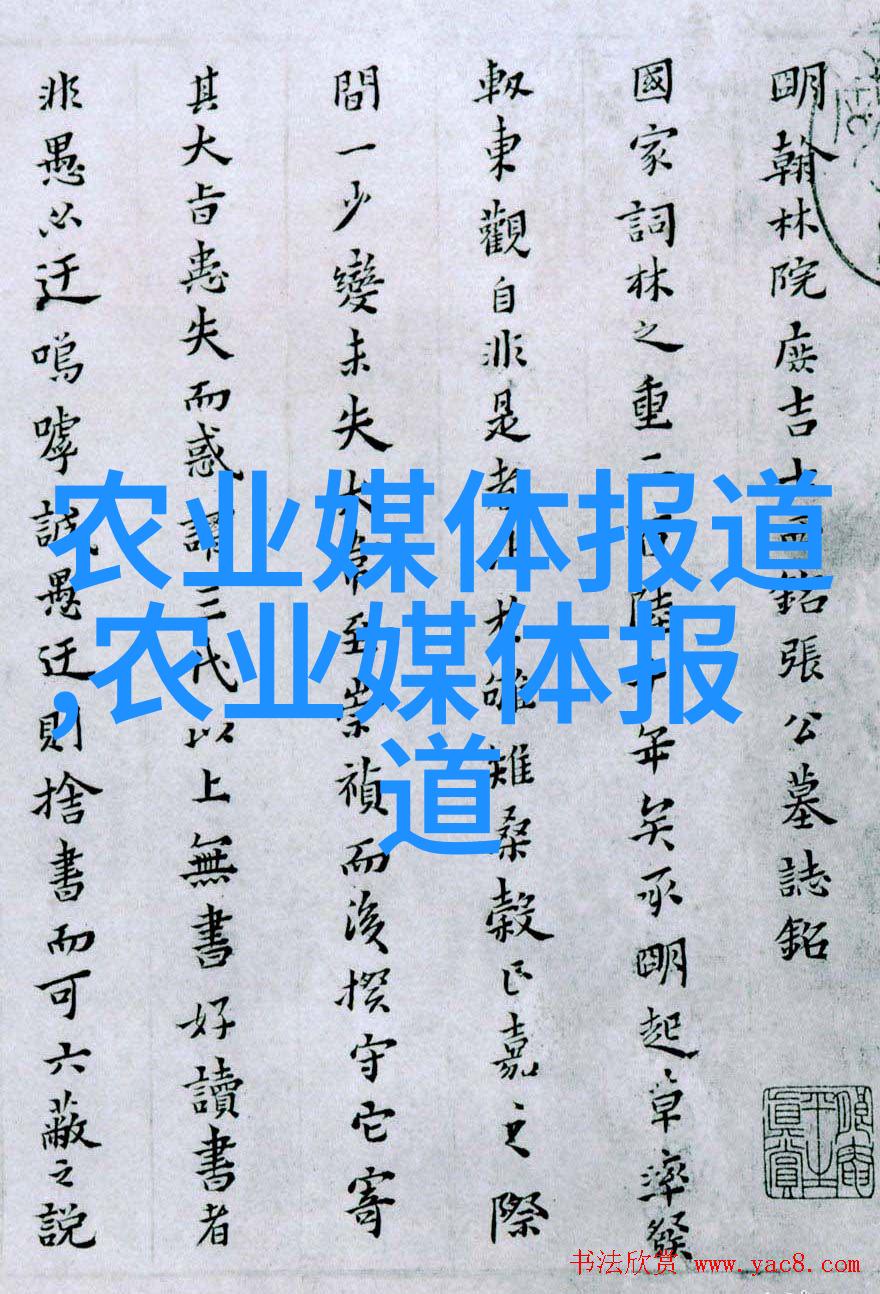 明翰林院庶吉士西銘張公墓誌銘
國家詞林之重二百陸十年矣承明起草濟發
軔東觀自非是者
雉桑榖正嘉之際
間一少變未失大常至崇禎而後揆守它寄
其大旨患失而惑謂三代以上無書好讀書者
非愚必迂嗚嘑誠愚迂則捨書而可六蔽之説
農业媒体报道
,农业媒体报
道
书法欣赏 www.yac8.com